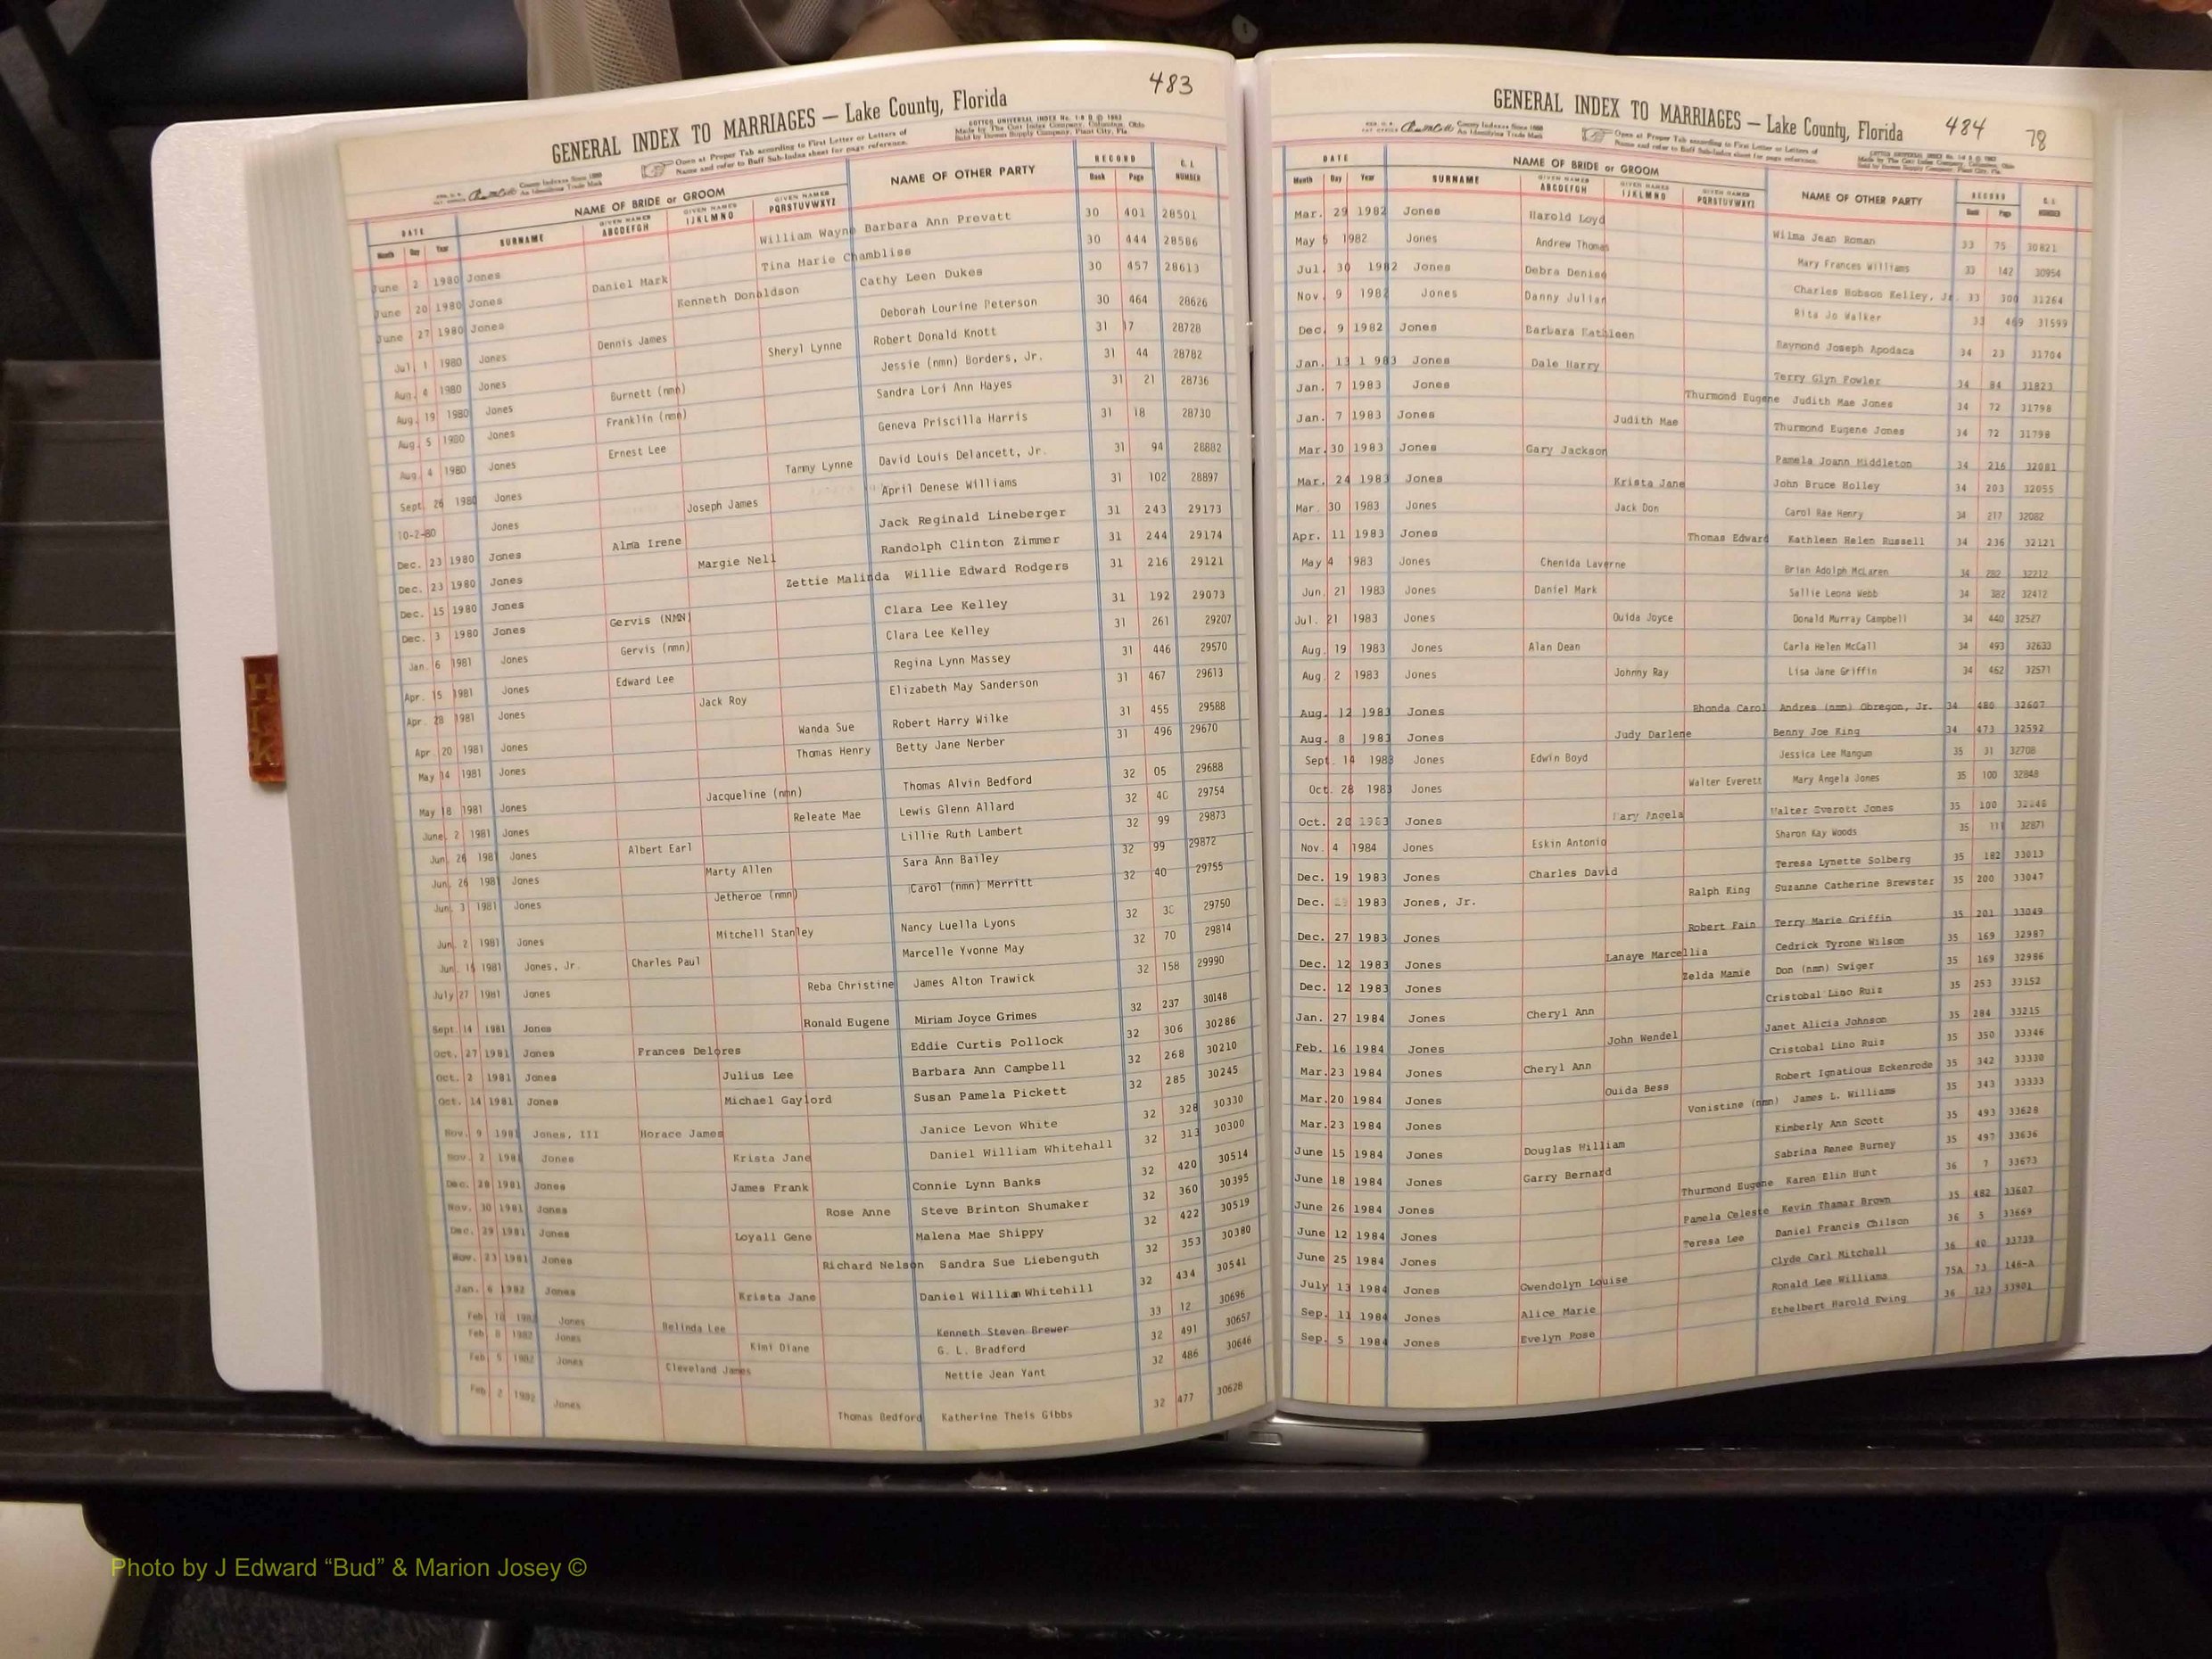 483
GENERAL INDEX TO MARRIAGES — Lake County, Florida
County Indexes Since 1888 An Identifying Trade Mark
Open at Proper Tab according to First Letter or Letters of Name and refer to Buff Sub-Index sheet for page reference.
DATE NAME OF BRIDE or GROOM NAME OF OTHER PARTY RECORD
Month Day Year SURNAME GIVEN NAMES ABCDEFGH GIVEN NAMES IJKLMNO GIVEN NAMES PQRSTUVWXYZ Book Page NUMBER
June 2 1980 Jones William Wayne Barbara Ann Prevatt 30 401 28501
June 20 1980 Jones Daniel Mark Tina Marie Chambliss 30 444 28586
June 27 1980 Jones Kenneth Donaldson Cathy Leen Dukes 30 457 28613
Jul 1 1980 Jones Dennis James Deborah Lourine Peterson 30 464 28626
Aug. 4 1980 Jones Sheryl Lynne Robert Donald Knott 31 17 28728
Aug. 19 1980 Jones Burnett (nmn) Jessie (nmn) Borders, Jr. 31 44 28782
Aug. 5 1980 Jones Franklin (nmn) Sandra Lori Ann Hayes 31 21 28736
Aug 4 1980 Jones Ernest Lee Geneva Priscilla Harris 31 18 28730
Sept. 26 1980 Jones Tammy Lynne David Louis Delancett, Jr. 31 94 28882
10-2-80 Jones Joseph James April Denese Williams 31 102 28897
Dec. 23 1980 Jones Alma Irene Jack Reginald Lineberger 31 243 29173
Dec. 23 1980 Jones Margie Nell Randolph Clinton Zimmer 31 244 29174
Dec. 15 1980 Jones Zettie Malinda Willie Edward Rodgers 31 216 29121
Dec. 3 1980 Jones Gervis (NMN) Clara Lee Kelley 31 192 29073
Jan. 6 1981 Jones Gervis (nmn) Clara Lee Kelley 31 261 29207
Apr. 15 1981 Jones Edward Lee Regina Lynn Massey 31 446 29570
Apr. 28 1981 Jones Jack Roy Elizabeth May Sanderson 31 467 29613
Apr. 20 1981 Jones Wanda Sue Robert Harry Wilke 31 455 29588
May 14 1981 Jones Thomas Henry Betty Jane Nerber 31 496 29670
May 18 1981 Jones Jacqueline (nmn) Thomas Alvin Bedford 32 05 29688
June 2 1981 Jones Releate Mae Lewis Glenn Allard 32 40 29754
Jun. 26 1981 Jones Albert Earl Lillie Ruth Lambert 32 99 29873
Jun. 26 1981 Jones Marty Allen Sara Ann Bailey 32 99 29872
Jun. 3 1981 Jones Jetheroe (nmn) Carol (nmn) Merritt 32 40 29755
Jun. 2 1981 Jones Mitchell Stanley Nancy Luella Lyons 32 30 29750
Jun 15 1981 Jones, Jr. Charles Paul Marcelle Yvonne May 32 70 29814
July 27 1981 Jones Reba Christine James Alton Trawick 32 158 29990
Sept. 14 1981 Jones Ronald Eugene Miriam Joyce Grimes 32 237 30148
Oct. 27 1981 Jones Frances Delores Eddie Curtis Pollock 32 306 30286
Oct. 2 1981 Jones Julius Lee Barbara Ann Campbell 32 268 30210
Oct. 14 1981 Jones Michael Gaylord Susan Pamela Pickett 32 285 30245
Nov. 9 1981 Jones, III Horace James Janice Levon White 32 328 30330
Nov. 2 1981 Jones Krista Jane Daniel William Whitehall 32 313 30300
Dec. 28 1981 Jones James Frank Connie Lynn Banks 32 420 30514
Nov. 30 1981 Jones Rose Anne Steve Brinton Shumaker 32 360 30395
Dec. 29 1981 Jones Loyall Gene Malena Mae Shippy 32 422 30519
Nov. 23 1981 Jones Richard Nelson Sandra Sue Liebenguth 32 353 30380
Jan. 6 1982 Jones Krista Jane Daniel William Whitehill 32 434 30541
Feb 18 1982 Jones Belinda Lee Kenneth Steven Brewer 33 12 30696
Feb 8 1982 Jones Kimi Diane G. L. Bradford 32 491 30657
Feb 5 1982 Jones Cleveland James Nettie Jean Yant 32 486 30646
Feb 2 1982 Jones Thomas Bedford Katherine Theis Gibbs 32 477 30628
GENERAL INDEX TO MARRIAGES — Lake County, Florida 484 78
County Indexes Since 1888 An Identifying Trade Mark
Open at Proper Tab according to First Letter or Letters of Name and refer to Buff Sub-Index sheet for page reference.
DATE NAME OF BRIDE or GROOM NAME OF OTHER PARTY RECORD
Month Day Year SURNAME GIVEN NAMES ABCDEFGH GIVEN NAMES IJKLMNO GIVEN NAMES PQRSTUVWXYZ Book Page NUMBER
Mar. 29 1982 Jones Harold Loyd Wilma Jean Roman 33 75 30821
May 5 1982 Jones Andrew Thomas Mary Frances Williams 33 142 30954
Jul. 30 1982 Jones Debra Denise Charles Hobson Kelley, Jr. 33 300 31264
Nov. 9 1982 Jones Danny Julian Rita Jo Walker 33 469 31599
Dec. 9 1982 Jones Barbara Kathleen Raymond Joseph Apodaca 34 23 31704
Jan. 13 1 983 Jones Dale Harry Terry Glyn Fowler 34 84 31823
Jan. 7 1983 Jones Thurmond Eugene Judith Mae Jones 34 72 31798
Jan. 7 1983 Jones Judith Mae Thurmond Eugene Jones 34 72 31798
Mar. 30 1983 Jones Gary Jackson Pamela Joann Middleton 34 216 32081
Mar. 24 1983 Jones Krista Jane John Bruce Holley 34 203 32055
Mar 30 1983 Jones Jack Don Carol Rae Henry 34 217 32082
Apr. 11 1983 Jones Thomas Edward Kathleen Helen Russell 34 236 32121
May 4 1983 Jones Chenida Laverne Brian Adolph McLaren 34 282 32212
Jun. 21 1983 Jones Daniel Mark Sallie Leona Webb 34 382 32412
Jul. 21 1983 Jones Ouida Joyce Donald Murray Campbell 34 440 32527
Aug. 19 1983 Jones Alan Dean Carla Helen McCall 34 493 32633
Aug. 2 1983 Jones Johnny Ray Lisa Jane Griffin 34 462 32571
Aug. 12 1983 Jones Rhonda Carol Andres (nmn) Obregon, Jr. 34 480 32607
Aug. 8 1983 Jones Judy Darlene Benny Joe King 34 473 32592
Sept. 14 1983 Jones Edwin Boyd Jessica Lee Mangum 35 31 32708
Oct. 28 1983 Jones Walter Everett Mary Angela Jones 35 100 32848
Oct. 28 1983 Jones Mary Angela Walter Everett Jones 35 100 32848
Nov. 4 1984 Jones Eskin Antonio Sharon Kay Woods 35 111 32871
Dec. 19 1983 Jones Charles David Teresa Lynette Solberg 35 182 33013
Dec. 1983 Jones, Jr. Ralph King Suzanne Catherine Brewster 35 200 33047
Dec. 27 1983 Jones Robert Fain Terry Marie Griffin 35 201 33049
Dec. 12 1983 Jones Lanaye Marcellia Cedrick Tyrone Wilson 35 169 32987
Dec. 12 1983 Jones Zelda Mamie Don (nmn) Swiger 35 169 32986
Jan. 27 1984 Jones Cheryl Ann Cristobal Lino Ruiz 35 253 33152
Feb. 16 1984 Jones John Wendel Janet Alicia Johnson 35 284 33215
Mar. 23 1984 Jones Cheryl Ann Cristobal Lino Ruiz 35 350 33346
Mar. 20 1984 Jones Ouida Bess Robert Ignatious Eckenrode 35 342 33330
Mar. 23 1984 Jones Vonistine (nmn) James L. Williams 35 343 33333
June 15 1984 Jones Douglas William Kimberly Ann Scott 35 493 33628
June 18 1984 Jones Garry Bernard Sabrina Renee Burney 35 497 33636
June 26 1984 Jones Thurmond Eugene Karen Elin Hunt 36 7 33673
June 12 1984 Jones Pamela Celeste Kevin Thamar Brown 35 482 33607
June 25 1984 Jones Teresa Lee Daniel Francis Chilson 36 5 33669
July 13 1984 Jones Gwendolyn Louise Clyde Carl Mitchell 36 40 33739
Sep. 11 1984 Jones Alice Marie Ronald Lee Williams 75A 73 146-A
Sep. 5 1984 Jones Evelyn Rose Ethelbert Harold Ewing 36 123 33901
HIK
Photo by J Edward “Bud” & Marion Josey ©